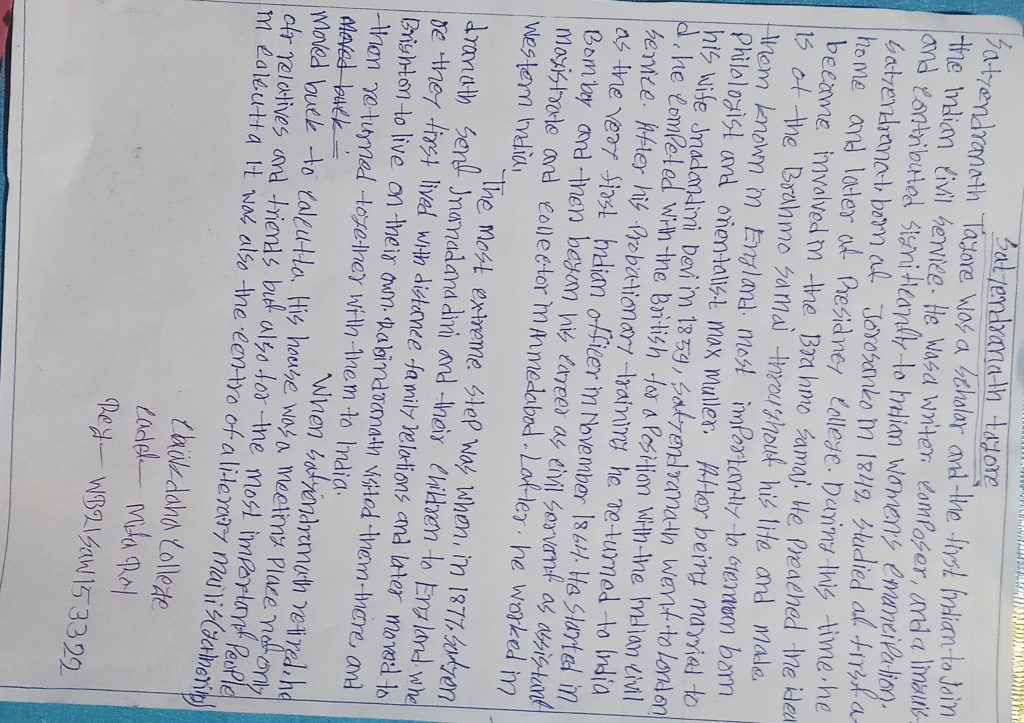 Satyendranath tagore
Satyendranath Tagore was a scholar and the first Indian to Join
the Indian civil service. He was a writer composer, and a linguis
and contributed significantly to Indian women's emancipation.
Satyendranath born at Jorosanko in 1842 studied at first a
home and later at Presidncy college. During this time he
became involved in the Brahmo Samaj. He Preached the idea
is of the Brahmo samaj throughout his life and made
them known in England. most importantly to German born
Philologist and orientalist max muller. After being married to
his wife Jnadandini Devi in 1859, Satyendranath went to London
d, he competed with the British for a Position with the Indian civil
service. After his Probationary training he returned to India
as the very first Indian officer in November 1864. He started in
Bombay and then began his career as civil servant as assistant
magistrate and collector in Ahmedabad. Latter he worked in
western India.
The most extreme step was when, in 1877, satyen
dranath send Jnanadanadini and their children to England. whe
re they first lived with distance family relations and later moved to
Brighton to live on their own. Rabindranath visted them there, and
then re-turned together with them to India.
Moved back When satyendranath retired, he
moved back to calcutta. His house was a meeting Place not only
of relatives and friends but also for the most important People
in calcutta It was also the centro of a literary majlis (gathering)
Chaikdaha College
cadet
Reg - WB21SWA153329